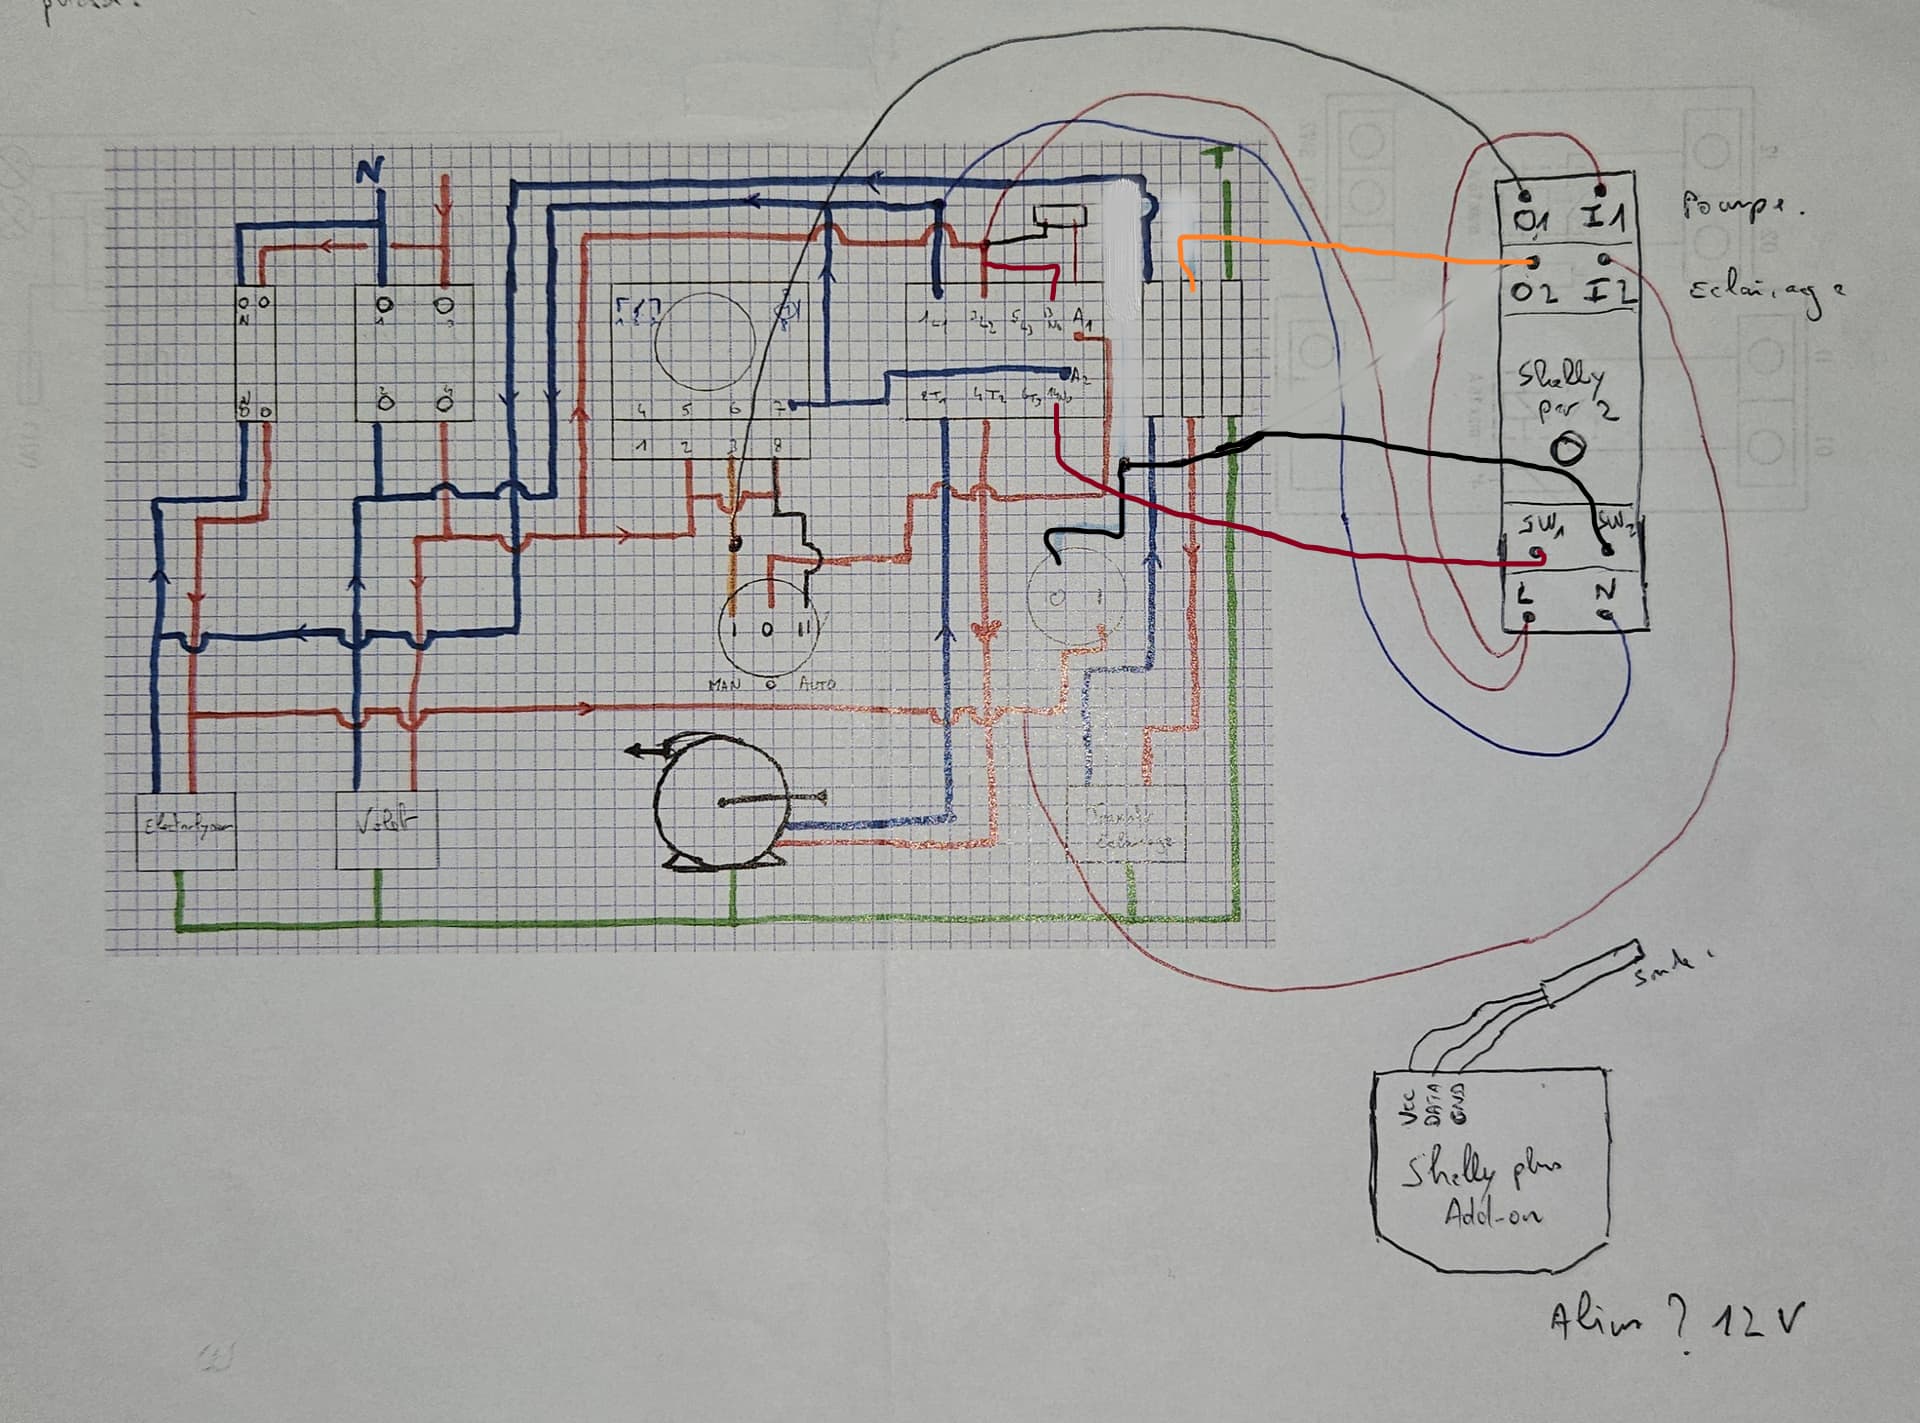 N
O1 I1
Pompe.
O2 I2
Eclairage
Shelly
pro 2
SW1 SW2
L N
N
1
3
4 5 6 7
1 2 3 8
1L1 3L2 5L3 13No A1
A2
2T1 4T2 6T3 14No
I O II
MAN O AUTO
O I
Electrolyseur
Volet
Transfo
éclairage
T
Sonde
VCC
DATA
GND
Shelly plus
Add-on
Alim ? 12 V